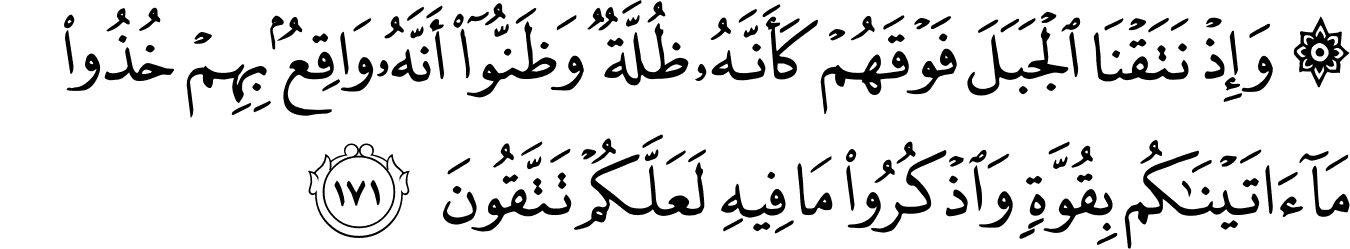 ۞ وَإِذۡ نَتَقۡنَا ٱلۡجَبَلَ فَوۡقَهُمۡ كَأَنَّهُۥ ظُلَّةٞ وَظَنُّوٓاْ أَنَّهُۥ وَاقِعُۢ بِهِمۡ خُذُواْ
مَآ ءَاتَيۡنَٰكُم بِقُوَّةٖ وَٱذۡكُرُواْ مَا فِيهِ لَعَلَّكُمۡ تَتَّقُونَ ١٧١